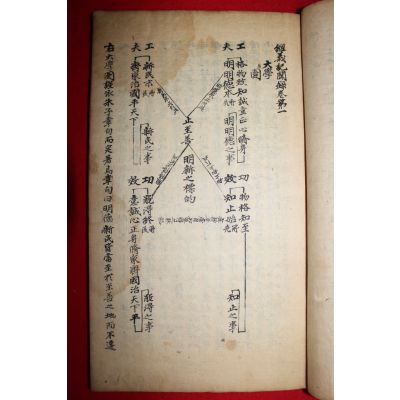 經義記聞錄卷第一
大學圖
工夫
格物致知誠意正心脩身
明明德
明明德之事
功效
物格知至
知止始
知止之事
止至善
明新之標的
工夫
新民
齊家治國平天下
新民之事
功效
能得終
意誠心正身脩家齊國治天下平
能得之事
右大學圖經依朱子章句而定著焉章句曰明德新民皆當至於至善之地而不遷